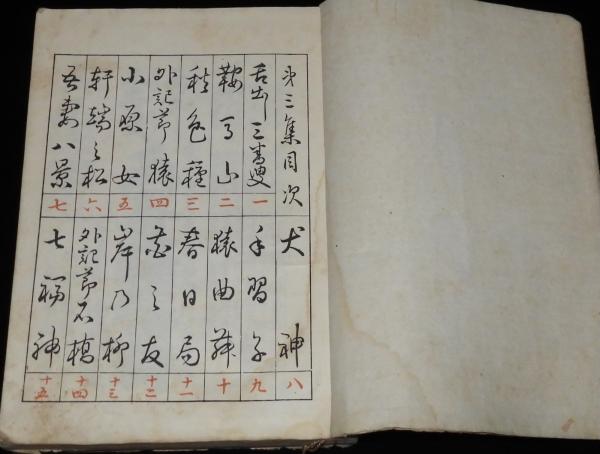 第三集目次
舌出三番叟
一
鞍馬山
二
秋色種
三
外記節猿
四
小原女
五
軒端之松
六
吾妻八景
七
犬神
八
手習子
九
猿曲舞
十
春日局
十一
岸の柳
十三
外記節石橋
十四
七福神
十五
之友
十二